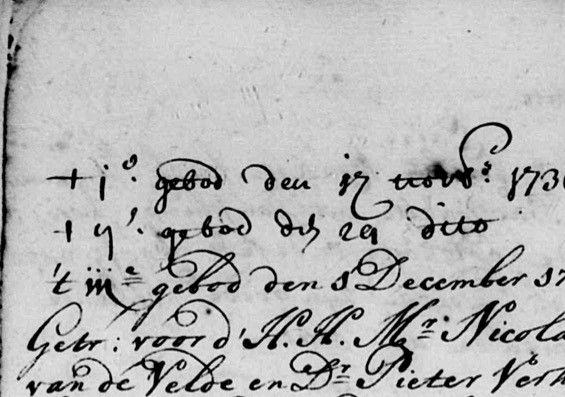 + 1º. gebod den 17 novbr: 173
+ ij. gebod den 24 ditto
't iije gebod den 1 December 17
Getr: voor d' H. H. Mr: Nicola
van de Velde en Dr Pieter Verh